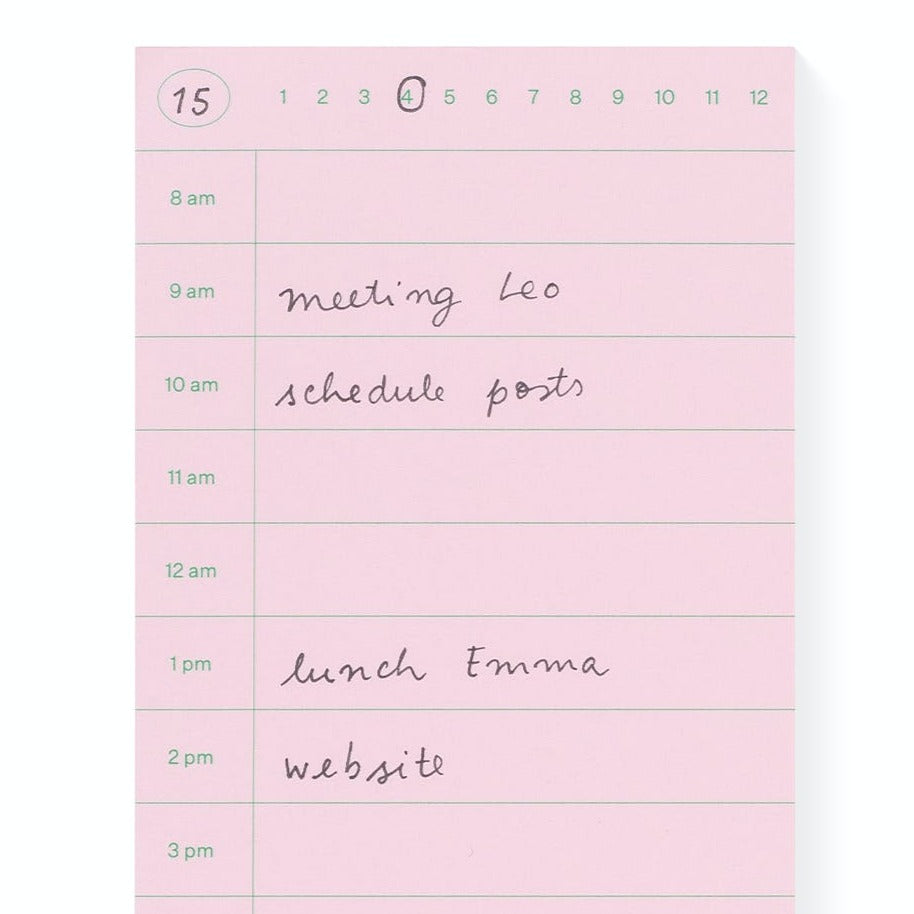 15 1 2 3 4 5 6 7 8 9 10 11 12
8 am
9 am meeting Leo
10 am schedule posts
11 am
12 am
1 pm lunch Emma
2 pm website
3 pm